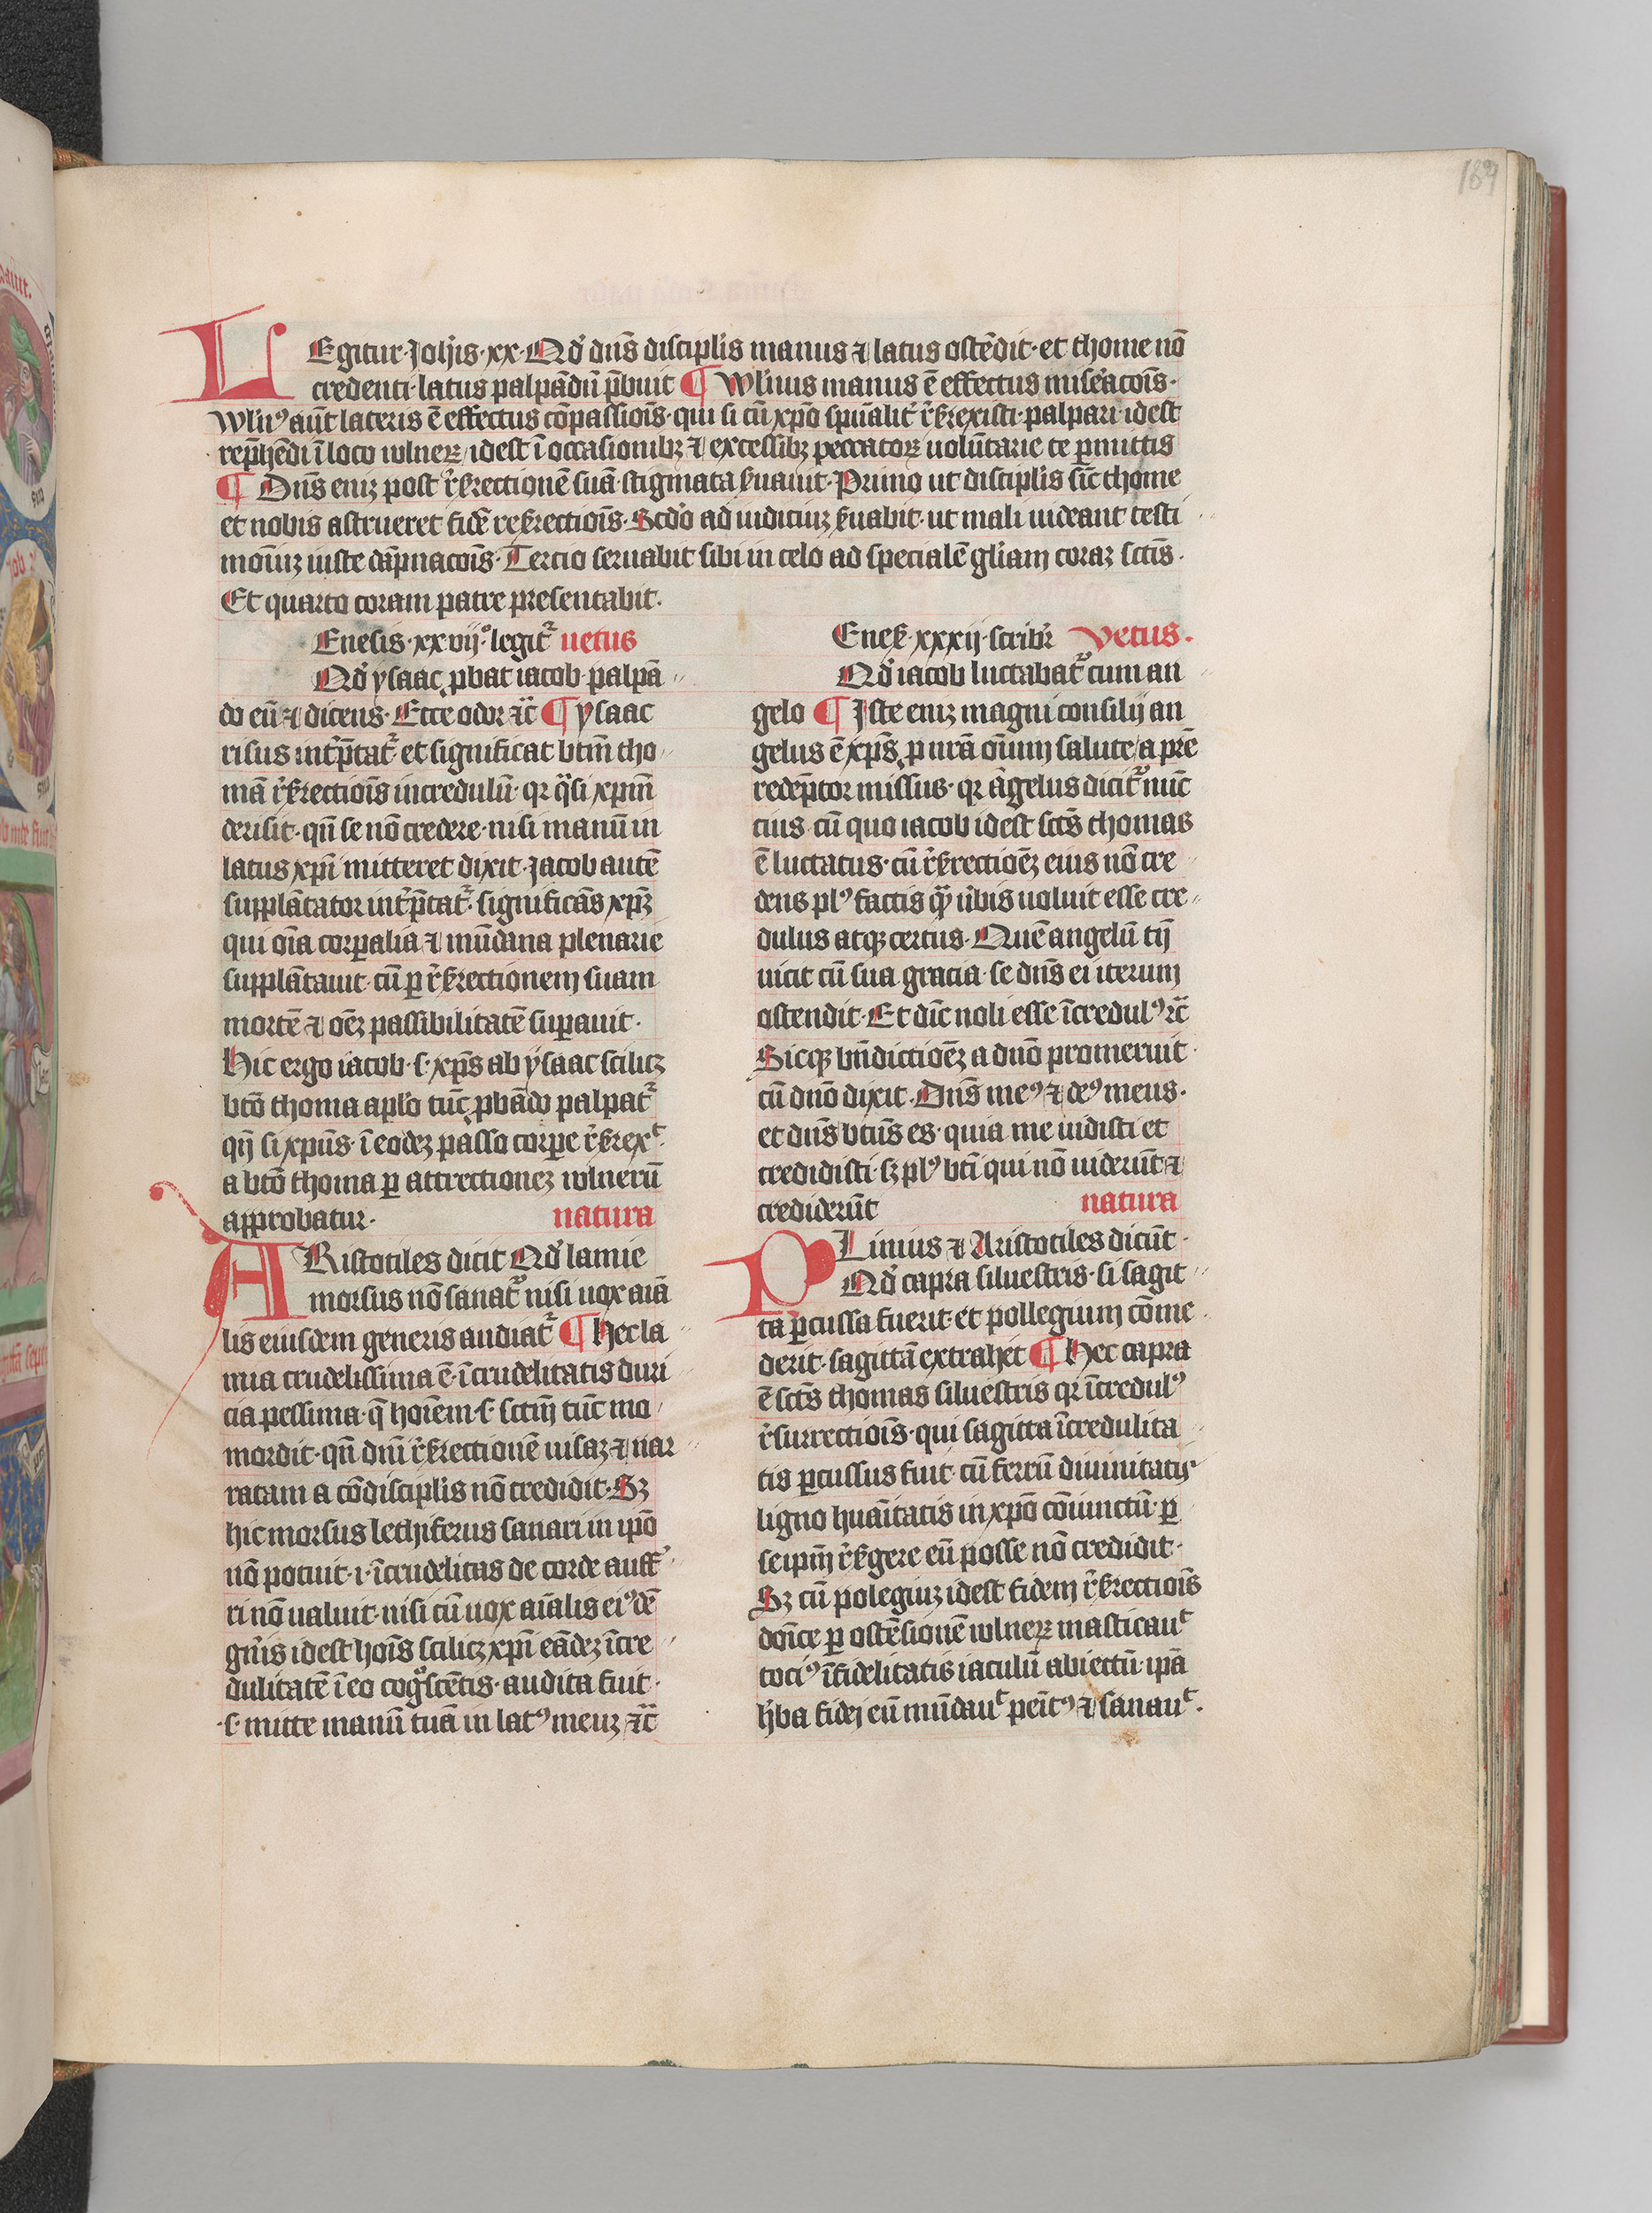 LEgitur·Joh̄is·xx·Qd̓ dn̄s discipl̄is manus ⁊ latus ostēdit·et thome nō
credenti·latus palpādū p̄buit ¶ Wln̓us manus ē effectus misēacoīs·
Wln̓ꝰ aūt lateris ē effectus cōpassiōis·qui si cū xp̄o spūalit̓ r̓surexisti·palpari·idest
rep̄hēdi ī loco wlneꝝ idest ī occasionibꝫ ⁊ excessibꝫ peccatoꝝ uolūtarie te ꝑmittis
¶ Dn̄s eniꝫ post r̓surrectionē suā·stigmata ẜuauit·Primo ut discipl̄is sic̄ thome
et nobis astrueret fidē resurrectiōis·Scd̓o ad iudiciuꝫ ẜuabit·ut mali uideant testi
moniuꝫ iuste dāpnacoīs·Tercio seruabit sibi in celo ad specialē gl̄iam coraꝫ sct̄is·
Et quarto coram patre presentabit·
Enesis·xxvijº legit᷑ uetus
Qd̓ ysaac ꝓbat iacob·palpā
do eū ⁊ dicens·Ecce odor ⁊c̄ ¶ ysaac
risus int̓p̄tat᷑ et significat bt̄m tho
mā r̓surrectiōis incredulū·qꝛ q̓si xp̄m
derisit·qn̄ se nō credere·nisi manū in
latus xp̄i mitteret dixit·Jacob autē
supplātator int̓p̄tat᷑·significās xp̄ꝫ
qui oīa corꝑalia ⁊ mūdana plenarie
supplātauit·cū ꝑ r̓surrectionem suam
mortē ⁊ oēꝫ passibilitatē suꝑauit·
Hic ergo iacob·s·xp̄s ab ysaac scilicꝫ
bt̄o thoma apl̄o tūc ꝓbādo palpat᷑
qn̄ si xp̄us·ī eodeꝫ passo corꝑe r̓surexᵗ
a bt̄o thoma ꝑ attrectioneꝫ wlnerū
approbatur· natura
ARistotiles dicit Qd̓ lamie
morsus nō sanat᷑ nisi uox aīa
lis eiusdem generis audiat᷑ ¶ Hec la
mia crudelissima ē·ī crudelitatis duri
cia pessima·q̄ hoīem·s·sctm̄ tūc mo
mordit·qn̄ dn̄i r̓surrectionē uisaꝫ ⁊ nar
ratam a cōdiscipl̄is nō credidit·Sꝫ
hic morsus lethiferus sanari in ip̄o
nō potuit·i·ī crudelitas de corde auff
ri nō ualuit·nisi cū uox aīalis eiꝰdē
gn̄is idest hoīs scilicꝫ xp̄i eādeꝫ īcre
dulitatē ī eo cogͦscētis·audita fuit·
·s·mitte manū tuā in latꝰ meuꝫ ⁊c̄
Eneẜ·xxxij·scribr̓ Vetus·
Qd̓ iacob luctabat᷑ cum an
gelo ¶ Jste eniꝫ magni consilij an
gelus ē xp̄s ꝓ nrā oīum salute a prē
redēptor missus·qꝛ āgelus dicit᷑ nūc
cius·cū quo iacob idest sct̄s thomas
ē luctatus·cū r̓surrectioēꝫ eius nō cre
dens plꝰ factis qͣ ūbis uoluit esse cre
dulus atqꝫ certus·Quē angelū tn̄
uicit cū sua gracia·se dn̄s ei iterum
ostendit·Et dic̄ noli esse īcredulꝰ ⁊c̄
Sicqꝫ bn̄dictioēꝫ a dn̄o promeruit·
cū dn̄o dixit·Dn̄s meꝰ ⁊ deꝰ meus·
et dn̄s bt̄us es·quia me uidisti et
credidisti·sꝫ plꝰ bt̄i qui nō uiderūt ⁊
crediderūt natura
PLinius ⁊ Aristotiles dicūt·
Qd̓ capra siluestris·si sagit
ta ꝑcussa fuerit·et pollegium cōme
derit·sagittā extrahet ¶ Hec capra
ē sct̄s thomas siluestris qꝛ īcredulꝰ
r̓surrectiōis·qui sagitta īcredulita
tis ꝑcussus fuit·cū ferrū diuinitatis
ligno huāitatis in xp̄o cōiunctū·ꝑ
seip̄m r̓surgere eū posse nō credidit·
Sꝫ cū polegiuꝫ idest fidem r̓surrectiōis
donīce ꝑ ostēsionē wlneꝝ masticauᵗ
tociꝰ īfidelitatis iaculū abiectū·ip̄a
h̓ba fidei eū mūdauᵗ penītꝰ ⁊ sanauᵗ·